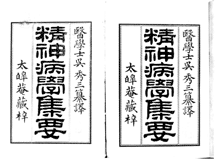 醫學士吳秀三纂譯
精神病學集要
太皞菴藏梓
醫學士吳秀三纂譯
精神病學集要
太皞菴藏梓